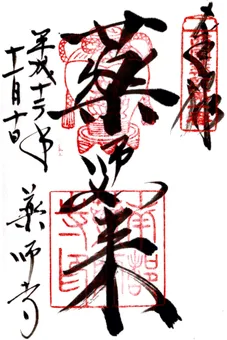 奉拝
薬師如来
平成
十一月十日
薬師寺
南都
寺印